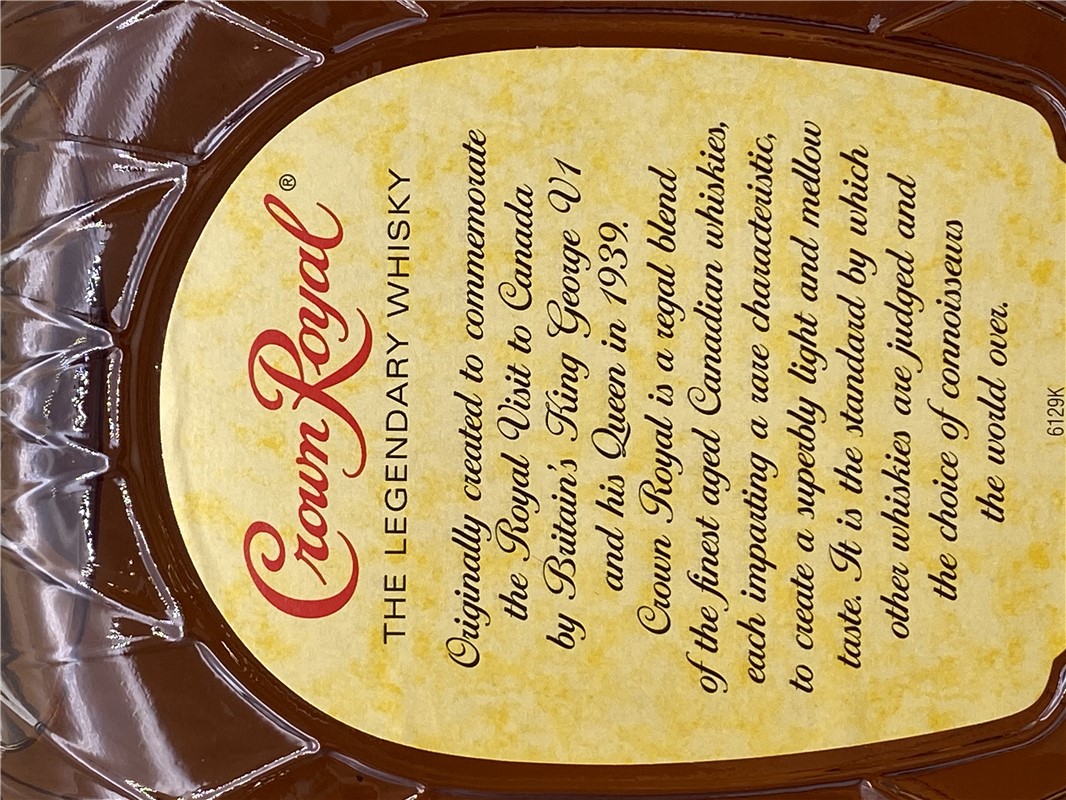 Crown Royal®
THE LEGENDARY WHISKY
Originally created to commemorate
the Royal Visit to Canada
by Britain's King George V1
and his Queen in 1939.
Crown Royal is a regal blend
of the finest aged Canadian whiskies,
each imparting a rare characteristic,
to create a superbly light and mellow
taste. It is the standard by which
other whiskies are judged and
the choice of connoisseurs
the world over.
6129K